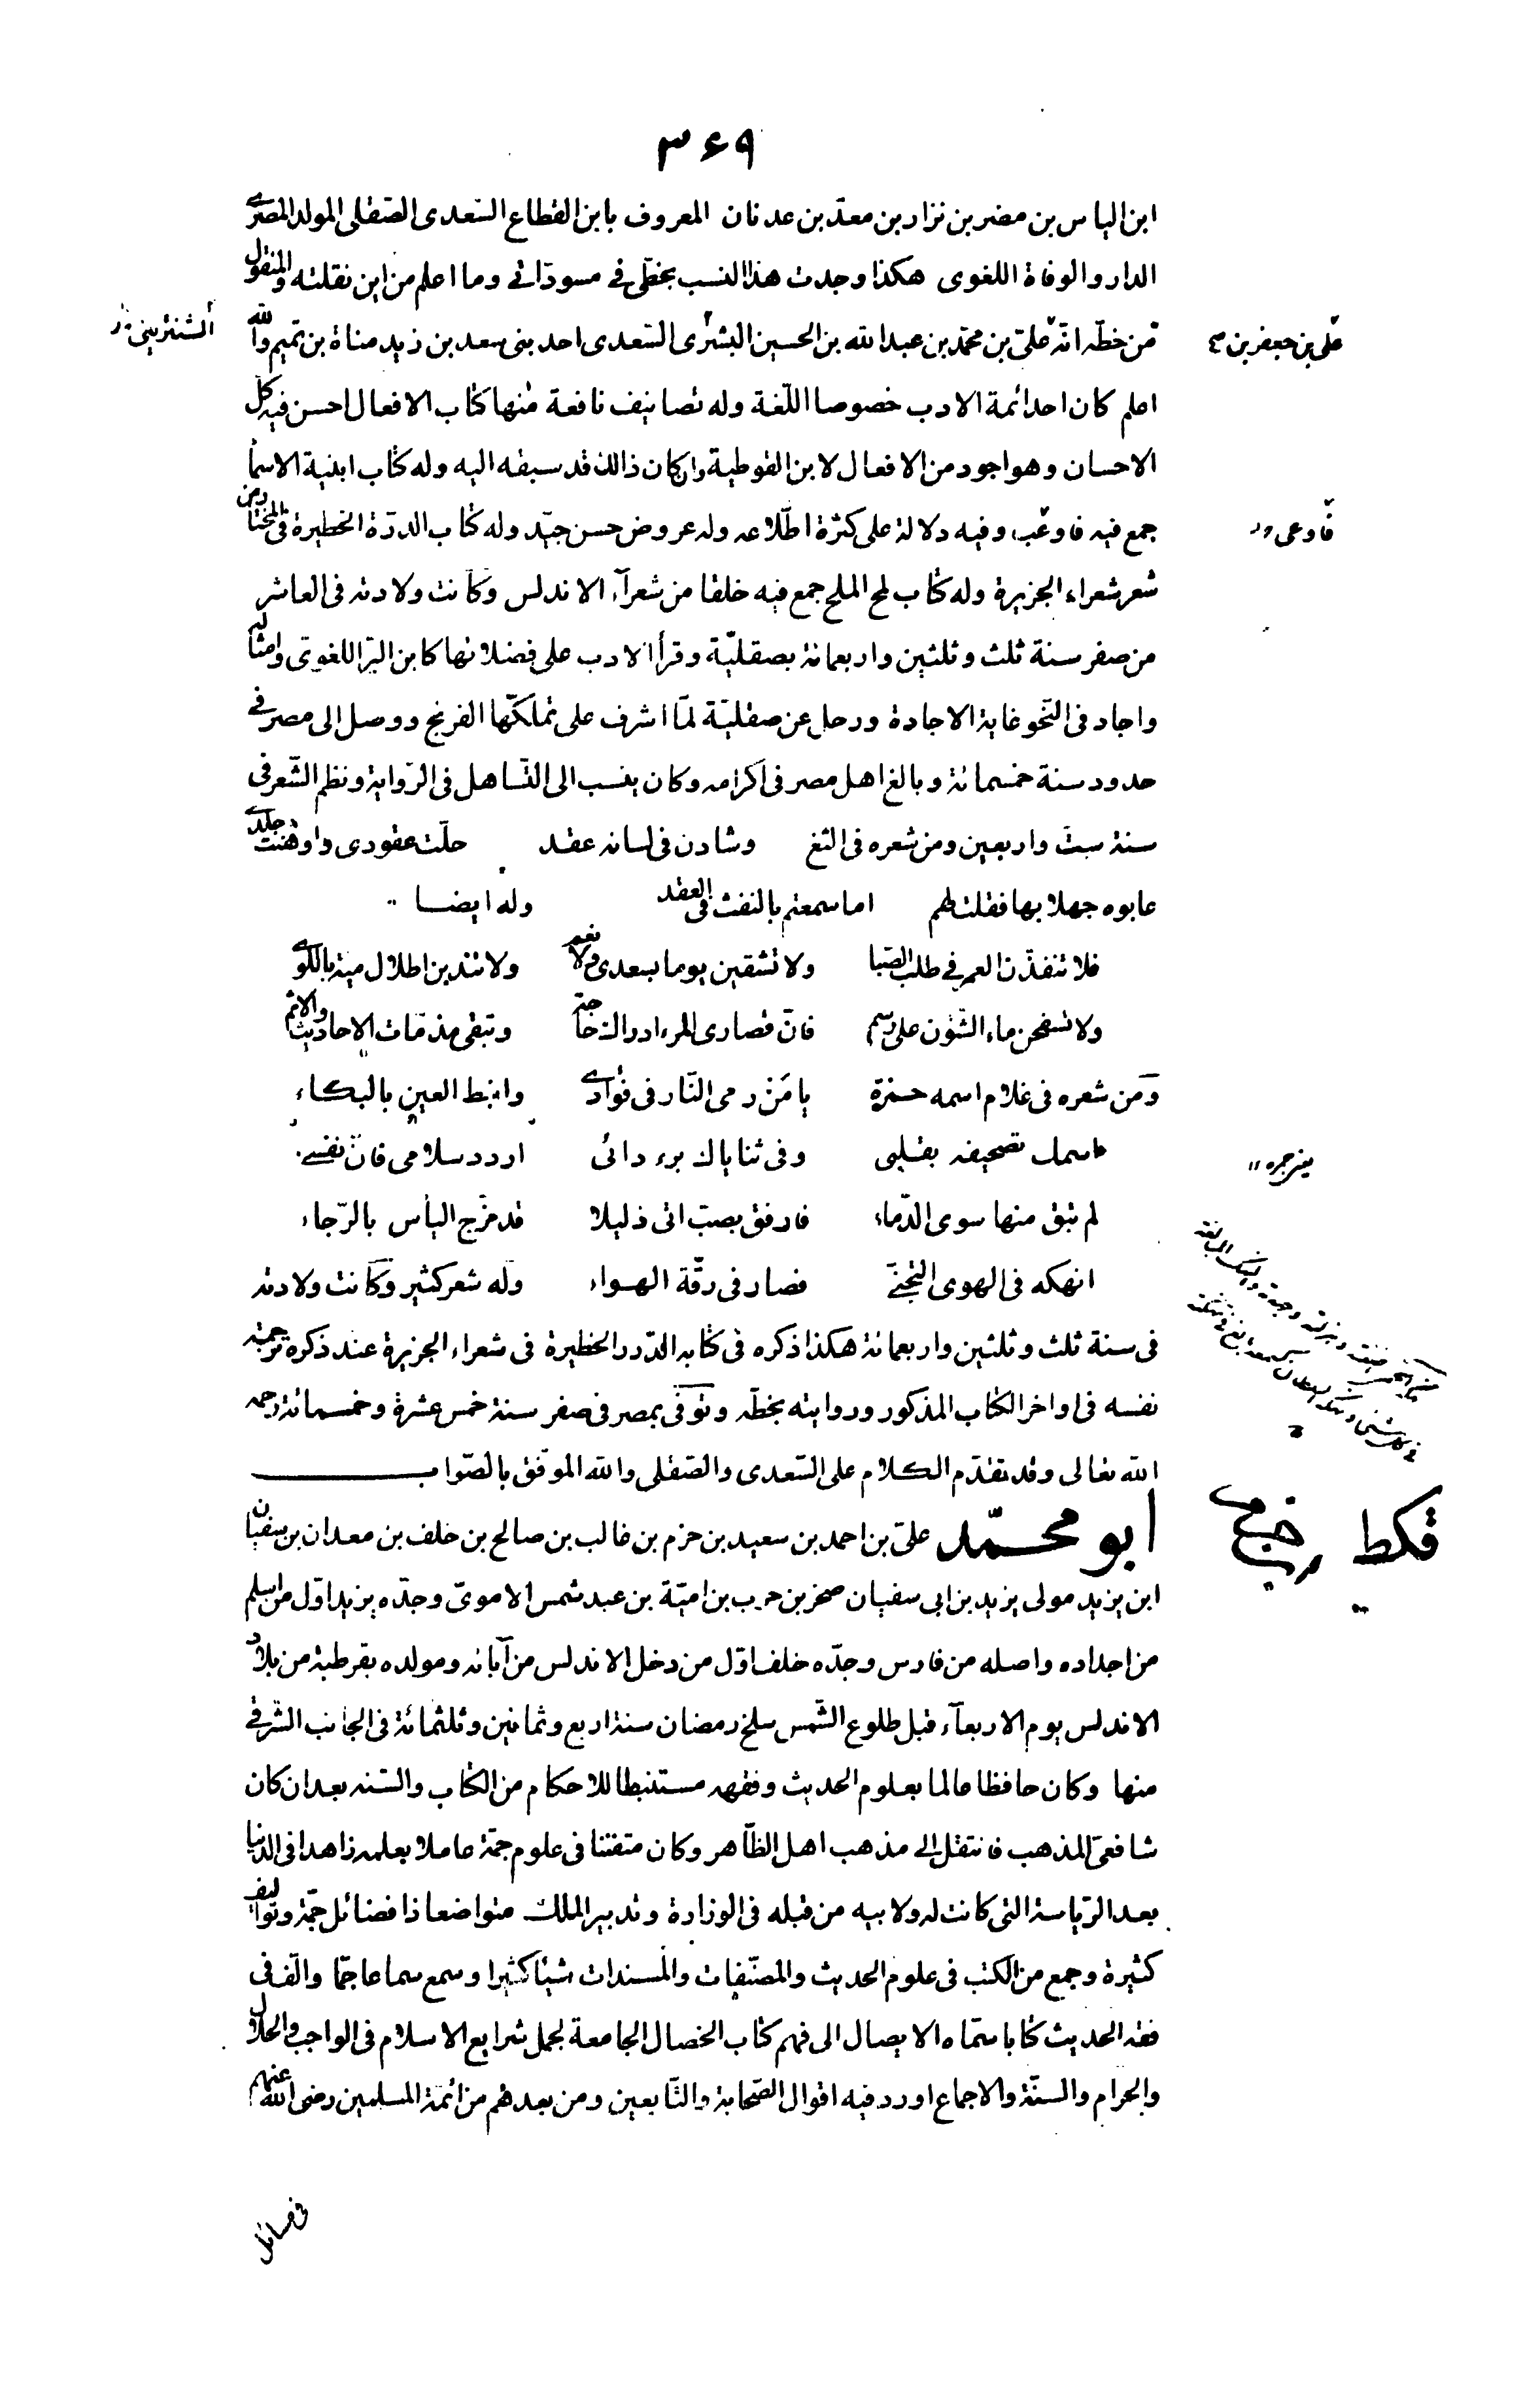 ۳۶۹
ابن الیاس بن مضر بن نزار بن معدّ بن عدنان المعروف بابن القطاع السّعدی الصّقلی المولد المصرے
الدار والوفاة اللغوی هکذا وجدت هذا النسب بخطّی فے مسوداتے وما اعلم من این نقلته والمنقول
من خطّه انّه علیّ بن محمّد بن عبد الله بن الحسین البشری السّعدی احد بنی سعد بن زید مناة بن تمیم والله
علی بن جعفر بن
الشنترینی
اعلم کان احد ائمة الادب خصوصا اللّغة وله تصانیف نافعة منها کتاب الافعال احسن فیه کل
الاحسان وهو اجود من الافعال لابن القوطیة وان کان ذالك قد سبقه الیه وله کتاب ابنیة الاسمأ
جمع فیه فاوعب وفیه دلالة علی کثرة اطّلاعه وله عروض حسن جیّد وله کتاب الدرّة الخطیرة فی المختار من
فاوعی
شعر شعراء الجزیرة وله کتاب لمح الملح جمع فیه خلقا من شعرآء الاندلس وکانت ولادته فی العاشر
من صفر سنة ثلث وثلثین واربعمائة بصقلیّة وقرأ الادب علی فضلائها کابن البرّ اللغوی وامثاله
واجاد فی النّحو غایة الاجادة ورحل عن صقلیّة لمّا اشرف علی تملّکها الفرنج ووصل الی مصر فے
حدود سنة خمسمائة وبالغ اهل مصر فی اکرامه وکان ینسب الی التّساهل فی الرّوایة ونظم الشّعر فی
سنة ستّ واربعین ومن شعره فی الثغ وشادن فی لسانه عقد حلّت عقودی واوهنت جلدے
عابوه جهلا بها فقلت لهم اما سمعتم بالنفث فی العقد وله ایضا
فلا تنفذن العمر فے طلب الصّبا ولا تشقین یوما بسعدی ولا نعم ولا تندبن اطلال میة باللوے
ولا تسفحن ماء الشّؤن علی رسم فانّ قصاری المرء ادراك حاجة وتبقی مذمّات الاحادیث والاثم
ومن شعره فی غلام اسمه حمزة یا من رمی النّار فی فؤادے وانبط العین بالبکاء
اسمك تصحیفه بقلبی وفی ثنایاك برء دائی اردد سلامی فانّ نفسے
یعنی جمره
لم یبق منها سوی الذّماء فارفق بصبّ اتی ذلیلا قد مزّج الیأس بالرّجاء
انهکه فی الهوی التجنّے فصار فی رقّة الهواء وله شعر کثیر وکانت ولادته
فی سنة ثلث وثلثین واربعمائة هکذا ذکره فی کتابه الدّرر الخطیرة فی شعراء الجزیرة عند ذکره ترجمة
نفسه فی اواخر الکتاب المذکور وروایته بخطّه وتوفّی بمصر فی صفر سنة خمس عشرة وخمسمائة رحمه
الله تعالی وقد تقدّم الکلام علی السّعدی والصّقلی والله الموفّق بالصّواب
ابو محمّد علیّ بن احمد بن سعید بن حزم بن غالب بن صالح بن خلف بن معدان بن سفیان
ابن یزید مولی یزید بن ابی سفیان صخر بن حرب بن امیّة بن عبد شمس الاموی وجدّه یزید اوّل من اسلم
من اجداده واصله من فارس وجدّه خلف اوّل من دخل الاندلس من آبائه ومولده بقرطبة من بلاد
الاندلس یوم الاربعآء قبل طلوع الشّمس سلخ رمضان سنة اربع وثمانین وثلثمائة فی الجانب الشّرقے
منها وکان حافظا عالما بعلوم الحدیث وفقهه مستنبطا للاحکام من الکتاب والسّنه بعد ان کان
شافعیّ المذهب فانتقل الے مذهب اهل الظّاهر وکان متفننا فی علوم جمّة عاملا بعلمه زاهدا فی الدنیا
بعد الرّیاسة التی کانت له ولابیه من قبله فی الوزارة وتدبیر الملك متواضعا ذا فضائل جمّة وتوالیف
کثیرة وجمع من الکتب فی علوم الحدیث والمصنّفات والمسندات شیئا کثیرا وسمع سماعا جمّا والّف فی
فقه الحدیث کتابا سمّاه الایصال الی فهم کتاب الخصال الجامعة لجمل شرایع الاسلام فی الواجب والحلال
والحرام والسنّة والاجماع اورد فیه اقوال الصّحابة والتّابعین ومن بعدهم من ائمّة المسلمین رضی الله عنهم